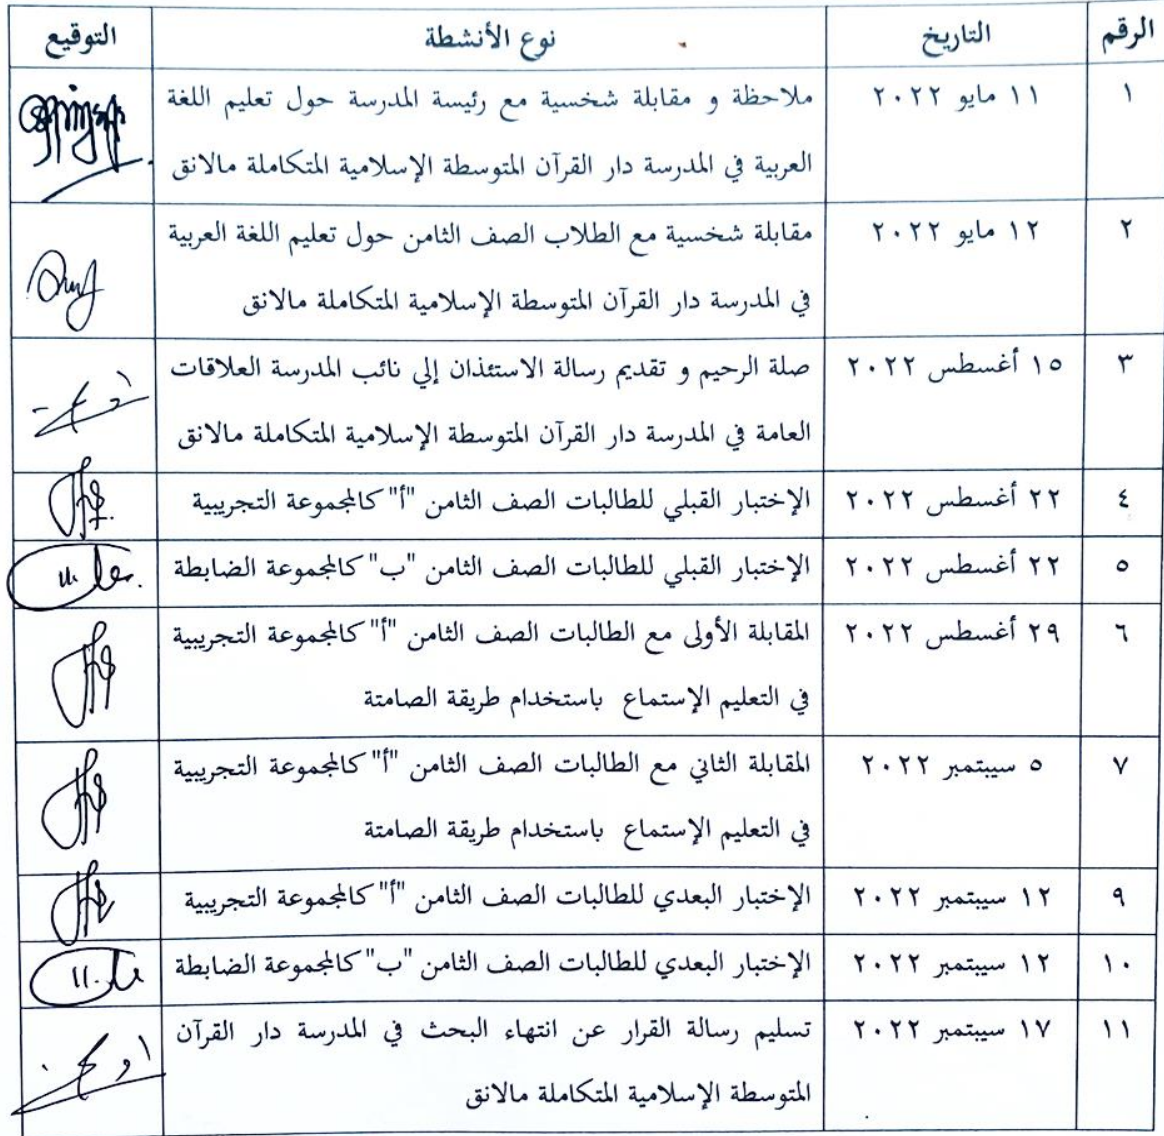 الرقم التاريخ نوع الأنشطة التوقيع
١ ١١ مايو ٢٠٢٢ ملاحظة و مقابلة شخسية مع رئيسة المدرسة حول تعليم اللغة
العربية في المدرسة دار القرآن المتوسطة الإسلامية المتكاملة مالانق
٢ ١٢ مايو ٢٠٢٢ مقابلة شخسية مع الطلاب الصف الثامن حول تعليم اللغة العربية
في المدرسة دار القرآن المتوسطة الإسلامية المتكاملة مالانق
٣ ١٥ أغسطس ٢٠٢٢ صلة الرحيم و تقديم رسالة الاستئذان إلي نائب المدرسة العلاقات
العامة في المدرسة دار القرآن المتوسطة الإسلامية المتكاملة مالانق
٤ ٢٢ أغسطس ٢٠٢٢ الإختبار القبلي للطالبات الصف الثامن "أ" كالمجموعة التجريبية
٥ ٢٢ أغسطس ٢٠٢٢ الإختبار القبلي للطالبات الصف الثامن "ب" كالمجموعة الضابطة
٦ ٢٩ أغسطس ٢٠٢٢ المقابلة الأولى مع الطالبات الصف الثامن "أ" كالمجموعة التجريبية
في التعليم الإستماع باستخدام طريقة الصامتة
٧ ٥ سيبتمبر ٢٠٢٢ المقابلة الثاني مع الطالبات الصف الثامن "أ" كالمجموعة التجريبية
في التعليم الإستماع باستخدام طريقة الصامتة
٩ ١٢ سيبتمبر ٢٠٢٢ الإختبار البعدي للطالبات الصف الثامن "أ" كالمجموعة التجريبية
١٠ ١٢ سيبتمبر ٢٠٢٢ الإختبار البعدي للطالبات الصف الثامن "ب" كالمجموعة الضابطة
١١ ١٧ سيبتمبر ٢٠٢٢ تسليم رسالة القرار عن انتهاء البحث في المدرسة دار القرآن
المتوسطة الإسلامية المتكاملة مالانق